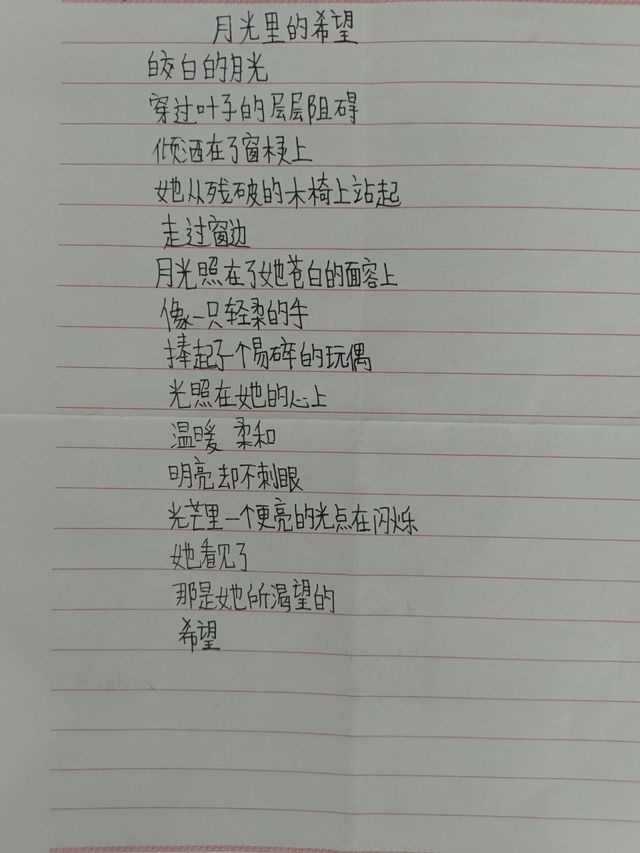 月光里的希望
皎白的月光
穿过叶子的层层阻碍
倾洒在了窗棂上
她从残破的木椅上站起
走过窗边
月光照在了她苍白的面容上
像一只轻柔的手
捧起了个易碎的玩偶
光照在她的心上
温暖 柔和
明亮却不刺眼
光芒里一个更亮的光点在闪烁
她看见了
那是她所渴望的
希望